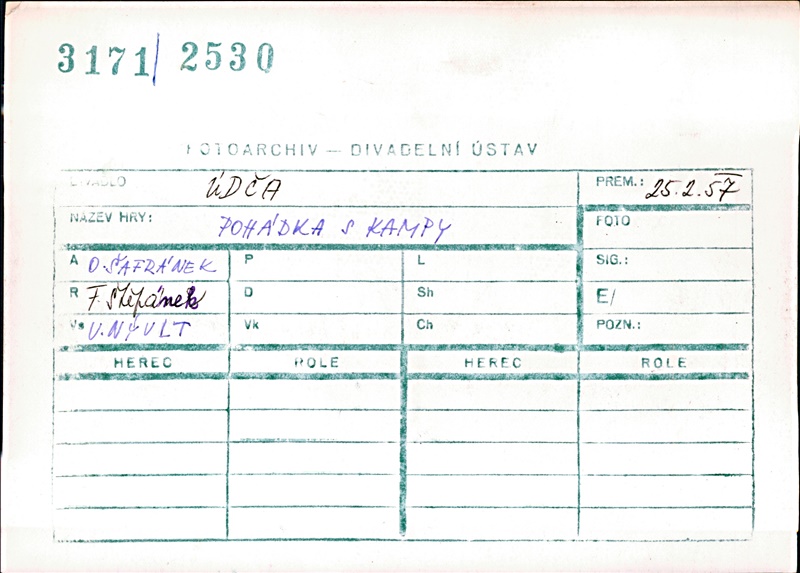 3171/ 2530
FOTOARCHIV — DIVADELNÍ ÚSTAV
DIVADLO ÚDČA PREM.: 25.2.57
NÁZEV HRY: POHÁDKA S KAMPY FOTO
A O. ŠAFRÁNEK P L SIG.:
R F. Štěpánek D Sh E/
Vs V. NÝVLT Vk Ch POZN.:
HEREC ROLE HEREC ROLE